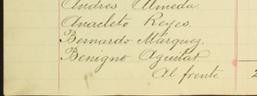 Andres Almeda
Anacleto Reyes.
Bernardo Márquez.
Benigno Aguilar
Al frente